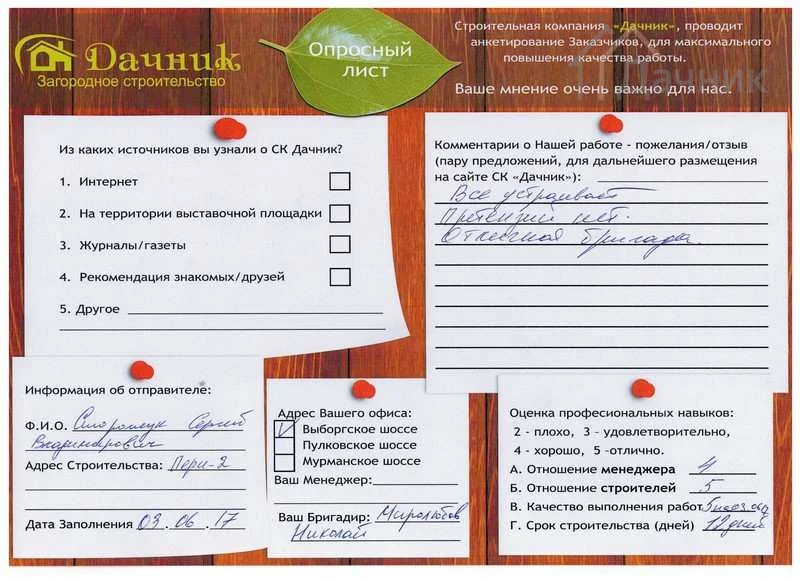 Дачник
Загородное строительство
Опросный
лист
Строительная компания «Дачник», проводит
анкетирование Заказчиков, для максимального
повышения качества работы.
Ваше мнение очень важно для нас.
Дачник
Из каких источников вы узнали о СК Дачник?
1. Интернет
2. На территории выставочной площадки
3. Журналы/газеты
4. Рекомендация знакомых/друзей
5. Другое
Комментарии о Нашей работе - пожелания/отзыв
(пару предложений, для дальнейшего размещения
на сайте СК «Дачник»):
Все устраивает
Претензий нет.
Отличная бригада.
Информация об отправителе:
Ф.И.О. Сергей
Владимирович
Адрес Строительства: Пери-2
Дата Заполнения 03.06.17
Адрес Вашего офиса:
Выборгское шоссе
Пулковское шоссе
Мурманское шоссе
Ваш Менеджер:
Ваш Бригадир: Миролюбов
Николай
Оценка професиональных навыков:
2 - плохо, 3 - удовлетворительно,
4 - хорошо, 5 -отлично.
А. Отношение менеджера 4
Б. Отношение строителей 5
В. Качество выполнения работ 5
Г. Срок строительства (дней) 12 дней